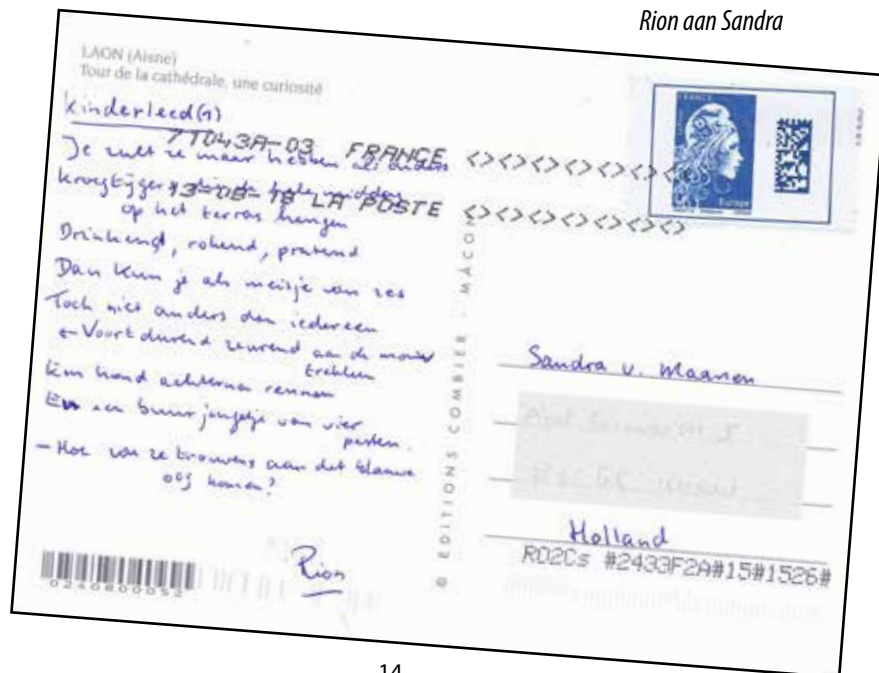 Rion aan Sandra
LAON (Aisne)
Tour de la cathédrale, une curiosité
FRANCE
Europe
kinderleed(1)
71043A-03 FRANCE <><><><><><><><>
Je zult ze maar hebben als ouders
13-08-18 LA POSTE <><><><><><><><>
kroegtijgers die de hele middag
op het terras hangen
Drinkend, rokend, pratend
Dan kun je als meisje van zes
Toch niet anders dan iedereen
Voortdurend zeurend aan de mouw
trekken
Een hond achterna rennen
En een buurjongetje van vier
pesten.
– Hoe zou ze trouwens aan dat blauwe
oog komen?
Rion
0240800052
© EDITIONS COMBIER - MÂCON
Sandra v. Maanen
Holland
RO2Cs #2433F2A#15#1526#
14